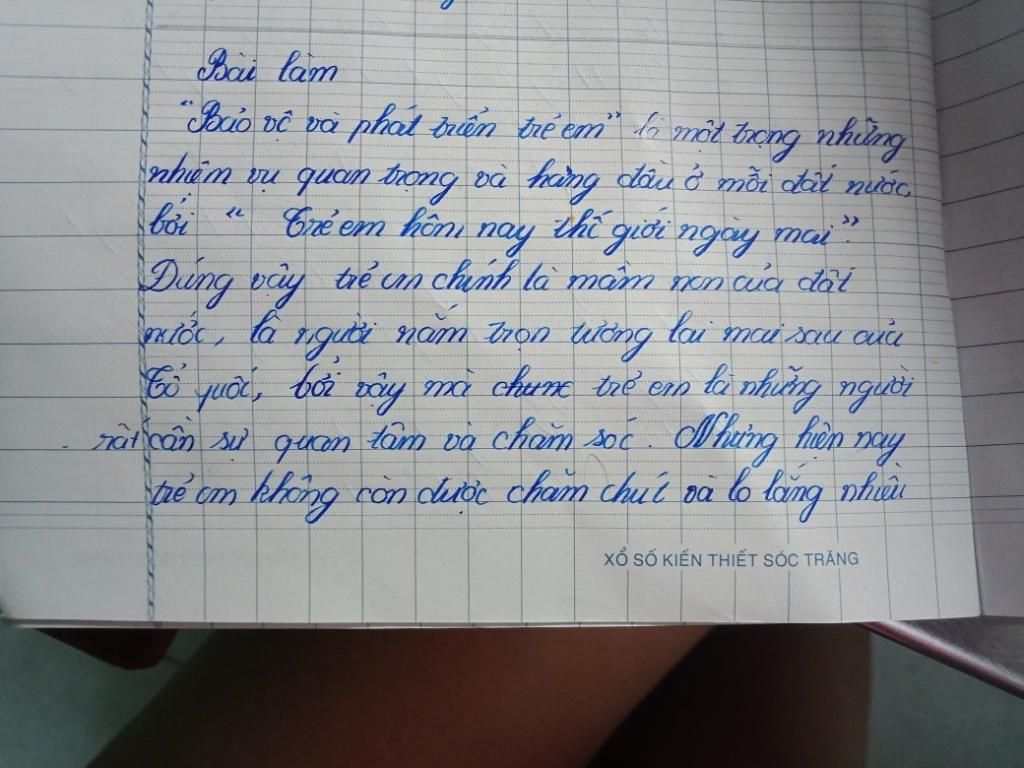 Bài làm
"Bảo vệ và phát triển trẻ em" là một trọng những
nhiệm vụ quan trọng và hàng đầu ở mỗi đất nước,
bởi " Trẻ em hôm nay thế giới ngày mai".
Đúng vậy trẻ em chính là mầm non của đất
nước, là người nắm trọn tương lai mai sau của
Tổ quốc, bởi vậy mà trẻ em là những người
rất cần sự quan tâm và chăm sóc. Nhưng hiện nay
trẻ em không còn được chăm chút và lo lắng nhiều
XỔ SỐ KIẾN THIẾT SÓC TRĂNG